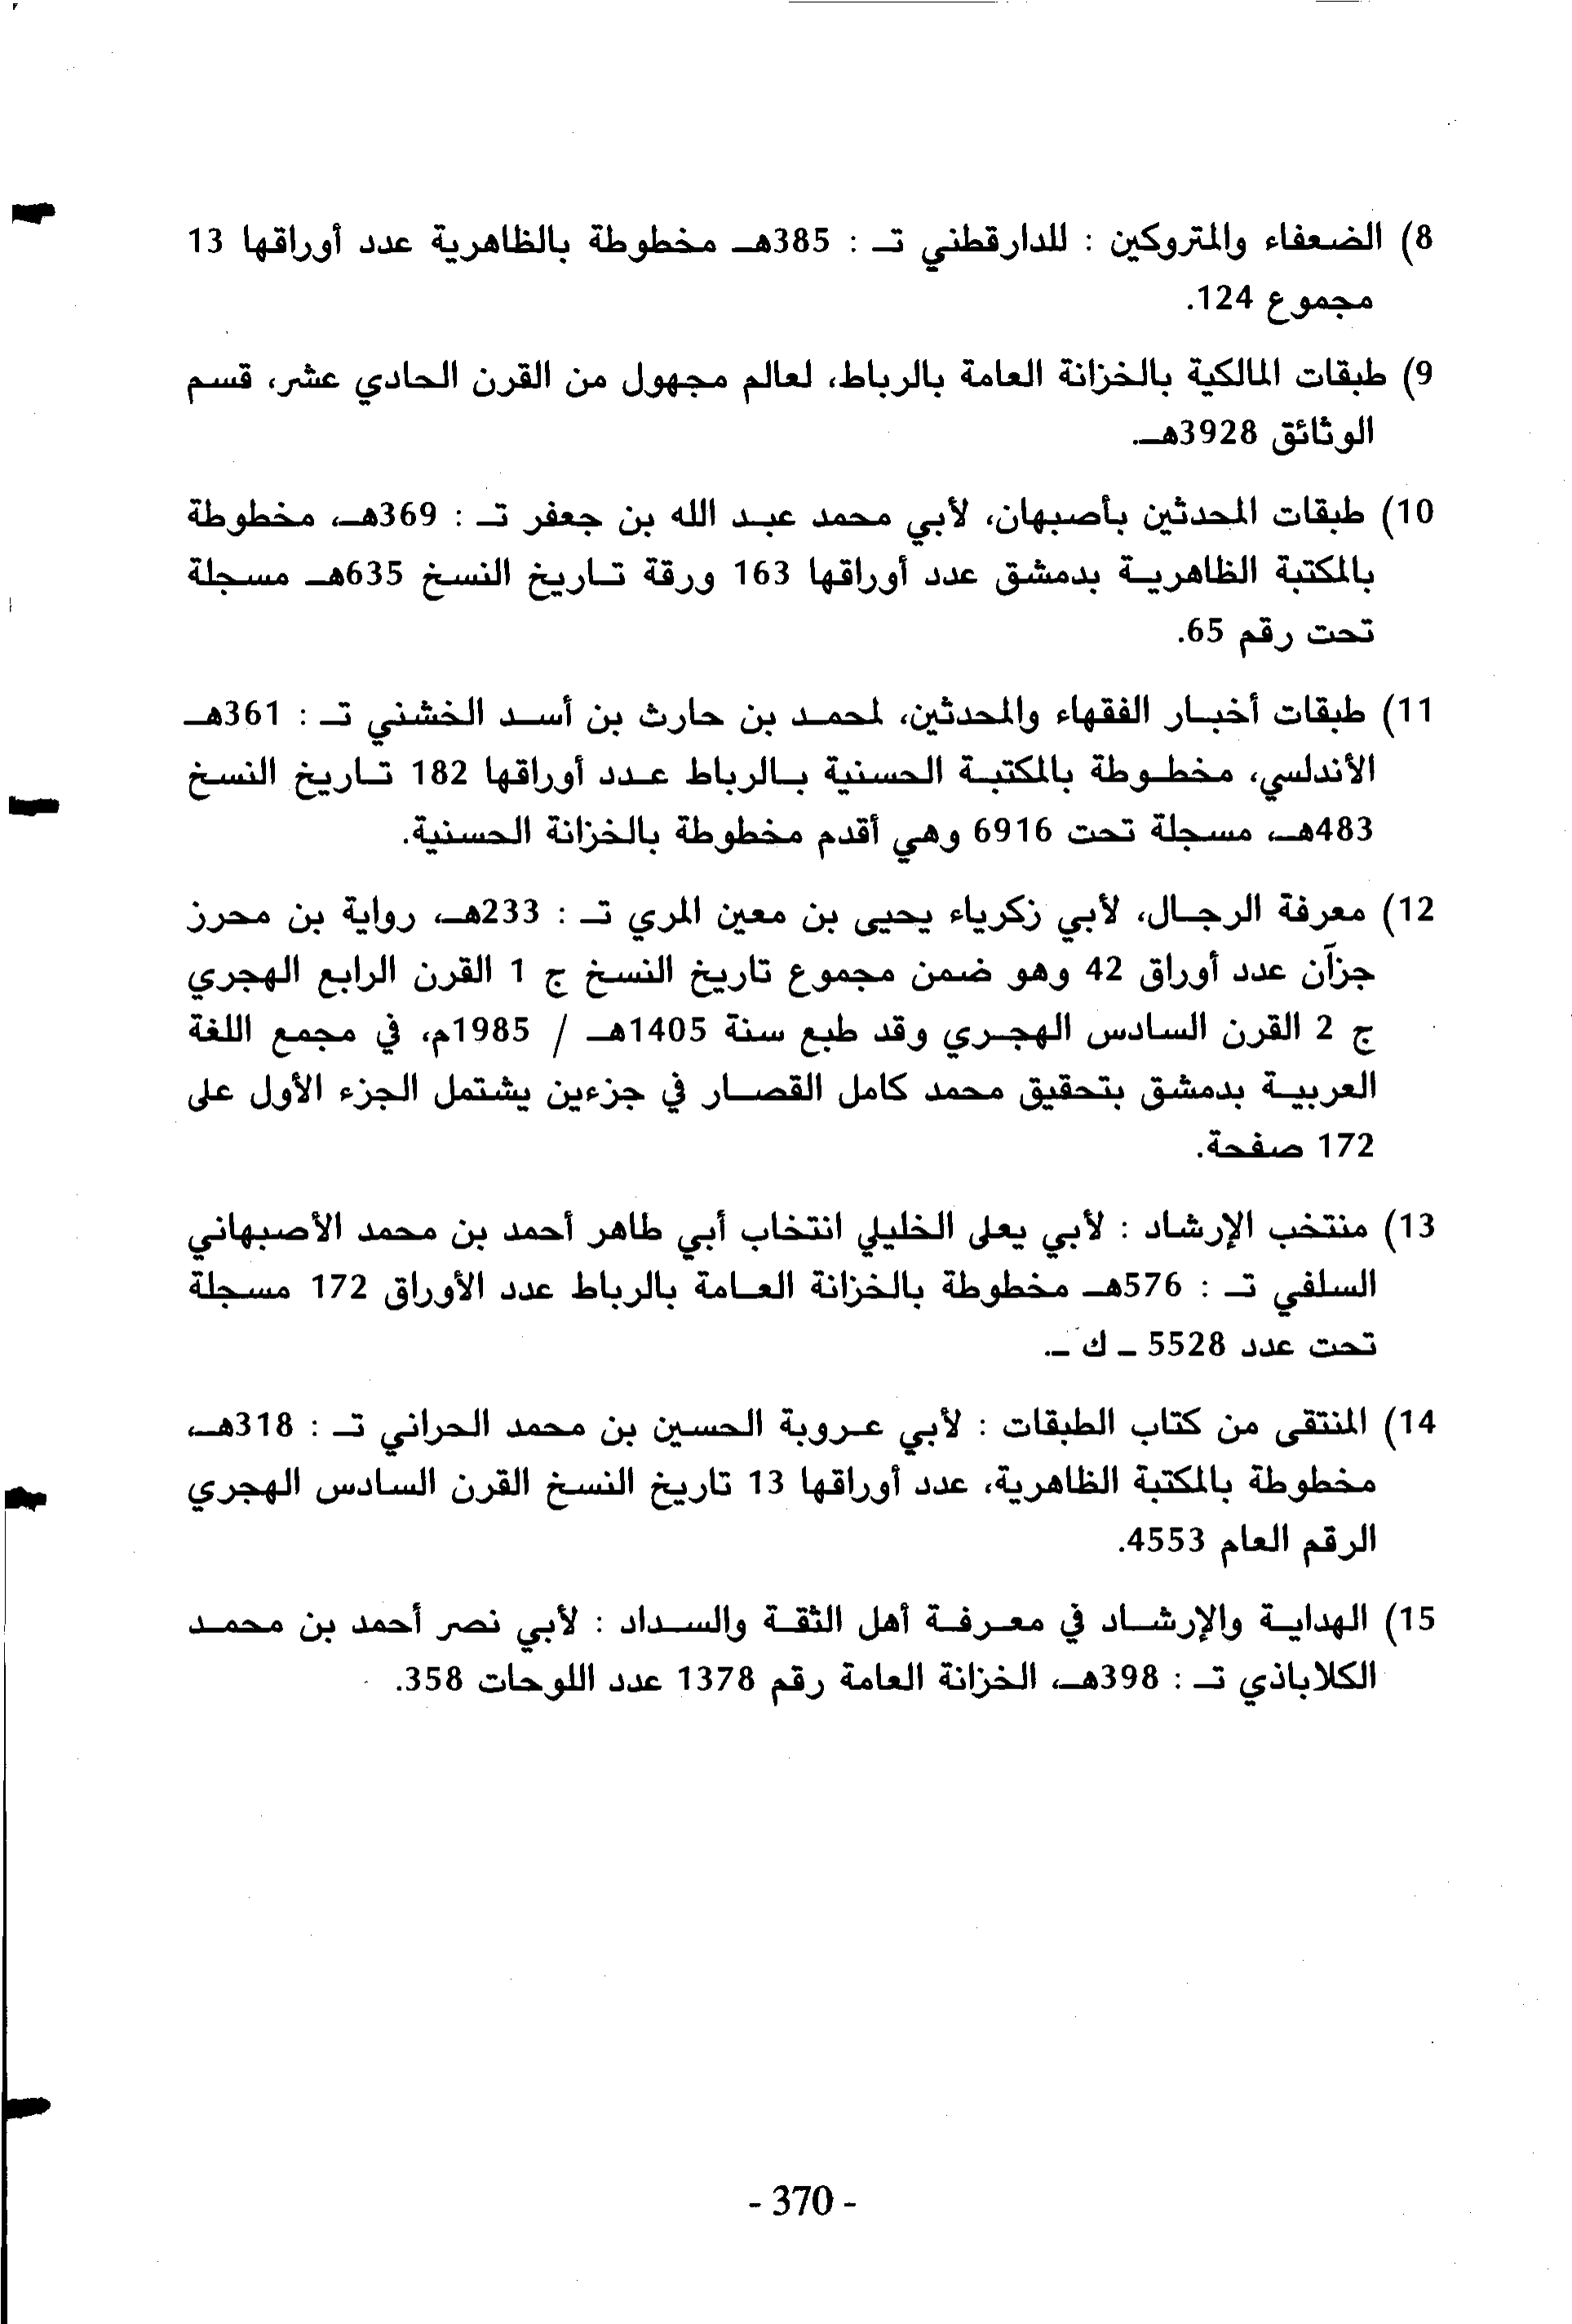 8) الضعفاء والمتروكين : للدارقطني تـ : 385هـ مخطوطة بالظاهرية عدد أوراقها 13
مجموع 124.
9) طبقات المالكية بالخزانة العامة بالرباط، لعالم مجهول من القرن الحادي عشر، قسم
الوثائق 3928هـ.
10) طبقات المحدثين بأصبهان، لأبي محمد عبد الله بن جعفر تـ : 369هـ، مخطوطة
بالمكتبة الظاهرية بدمشق عدد أوراقها 163 ورقة تاريخ النسخ 635هـ مسجلة
تحت رقم 65.
11) طبقات أخبار الفقهاء والمحدثين، لمحمد بن حارث بن أسد الخشني تـ : 361هـ
الأندلسي، مخطوطة بالمكتبة الحسنية بالرباط عدد أوراقها 182 تاريخ النسخ
483هـ، مسجلة تحت 6916 وهي أقدم مخطوطة بالخزانة الحسنية.
12) معرفة الرجال، لأبي زكرياء يحيى بن معين المري تـ : 233هـ، رواية بن محرز
جزآن عدد أوراق 42 وهو ضمن مجموع تاريخ النسخ ج 1 القرن الرابع الهجري
ج 2 القرن السادس الهجري وقد طبع سنة 1405هـ / 1985م، في مجمع اللغة
العربية بدمشق بتحقيق محمد كامل القصار في جزءين يشتمل الجزء الأول على
172 صفحة.
13) منتخب الإرشاد : لأبي يعلى الخليلي انتخاب أبي طاهر أحمد بن محمد الأصبهاني
السلفي تـ : 576هـ مخطوطة بالخزانة العامة بالرباط عدد الأوراق 172 مسجلة
تحت عدد 5528 ـ ك ـ.
14) المنتقى من كتاب الطبقات : لأبي عروبة الحسين بن محمد الحراني تـ : 318هـ،
مخطوطة بالمكتبة الظاهرية، عدد أوراقها 13 تاريخ النسخ القرن السادس الهجري
الرقم العام 4553.
15) الهداية والإرشاد في معرفة أهل الثقة والسداد : لأبي نصر أحمد بن محمد
الكلاباذي تـ : 398هـ، الخزانة العامة رقم 1378 عدد اللوحات 358.
- 370 -